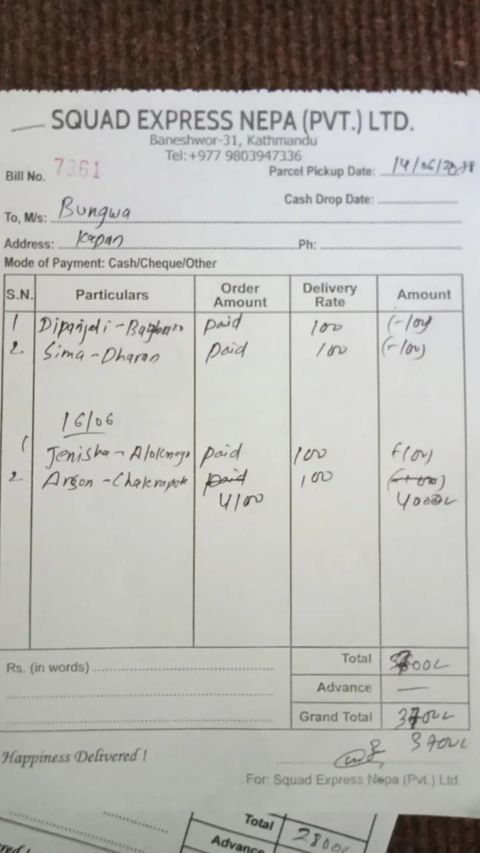 SQUAD EXPRESS NEPA (PVT.) LTD.
Baneshwor-31, Kathmandu
Tel:+977 9803947336
Bill No. 7361 Parcel Pickup Date: 14/06/2078
Cash Drop Date:
To, M/s: Bungwa
Address: Kapan Ph:
Mode of Payment: Cash/Cheque/Other
S.N. Particulars Order Amount Delivery Rate Amount
1 Dipanjali - paid 100 (-100)
2. Sima - Dharan paid 100 (-100)
16/06
1 Jenisha - paid 100 (-100)
2. Argon - Chakrapath paid 100 (-100)
4100 4000
Total
Rs. (in words)
Advance —
Grand Total
3700
Happiness Delivered !
For: Squad Express Nepa (Pvt.) Ltd.
Total 2800
Advance